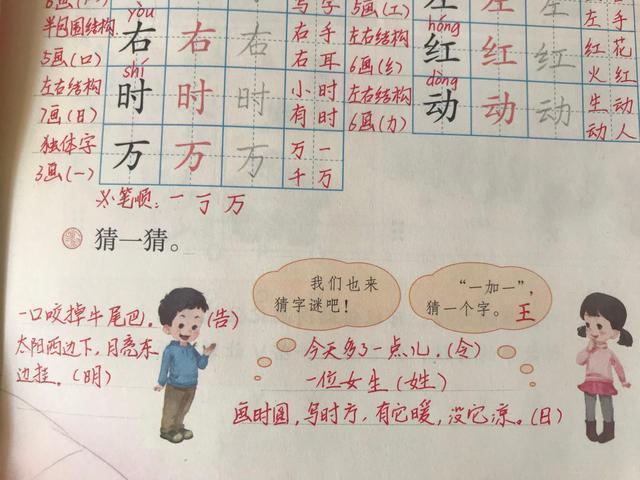 yòu
半包围结构 右 右 右 右手
5画(口) 右耳
shí
左右结构 时 时 时 小时
7画(日) 有时
独体字 万 万 万 万一
3画(一) 千万
笔顺: 一 丂 万
5画(工) 左手
hóng
左右结构 红 红 红 红花
6画(纟) 火红
dòng
左右结构 动 动 动 生动
6画(力) 动人
猜一猜。
我们也来
猜字谜吧!
“一加一”,
猜一个字。 王
一口咬掉牛尾巴。(告)
太阳西边下,月亮东
边挂。(明)
今天多了一点儿。(令)
一位女生(姓)
画时圆,写时方,有它暖,没它凉。(日)